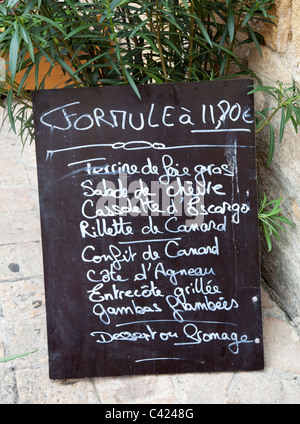 Formule à 11,90€
Terrine de foie gras
Salade de Chèvre
Cassolette d'Escargo
Rillette de Canard
Confit de Canard
Côte d'Agneau
Entrecôte grillée
Gambas flambées
Dessert ou Fromage
alamy
Image ID: C4248G
www.alamy.com